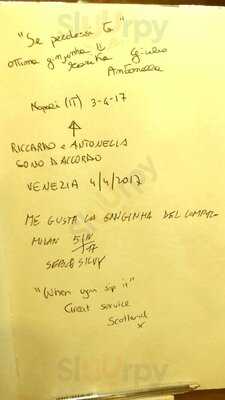 "Se perdessi te"
ottima ginjinha !!
Giulio
Antonella
Napoli (IT) 3-4-17
RICCARDO e ANTONELLA
SONO D'ACCORDO
VENEZIA 4/4/2017
ME GUSTA LA GINGINHA DEL
MILAN 5/IV/17
SILVY
"When you sip it"
Great service
Scotland
x
Sluurpy